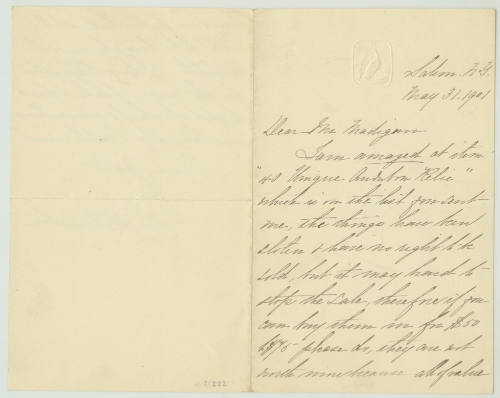 Salem N.Y.
May 31. 1901
Dear Mr Madigan
I am amazed at item
"88 Unique Audubon Relic"
which is on the list you sent
me, the things have been
stolen & have no right to be
sold, but it may hard to
stop the sale, therefore if you
can buy them in for $50
$75 please do, they are not
worth more because all of value